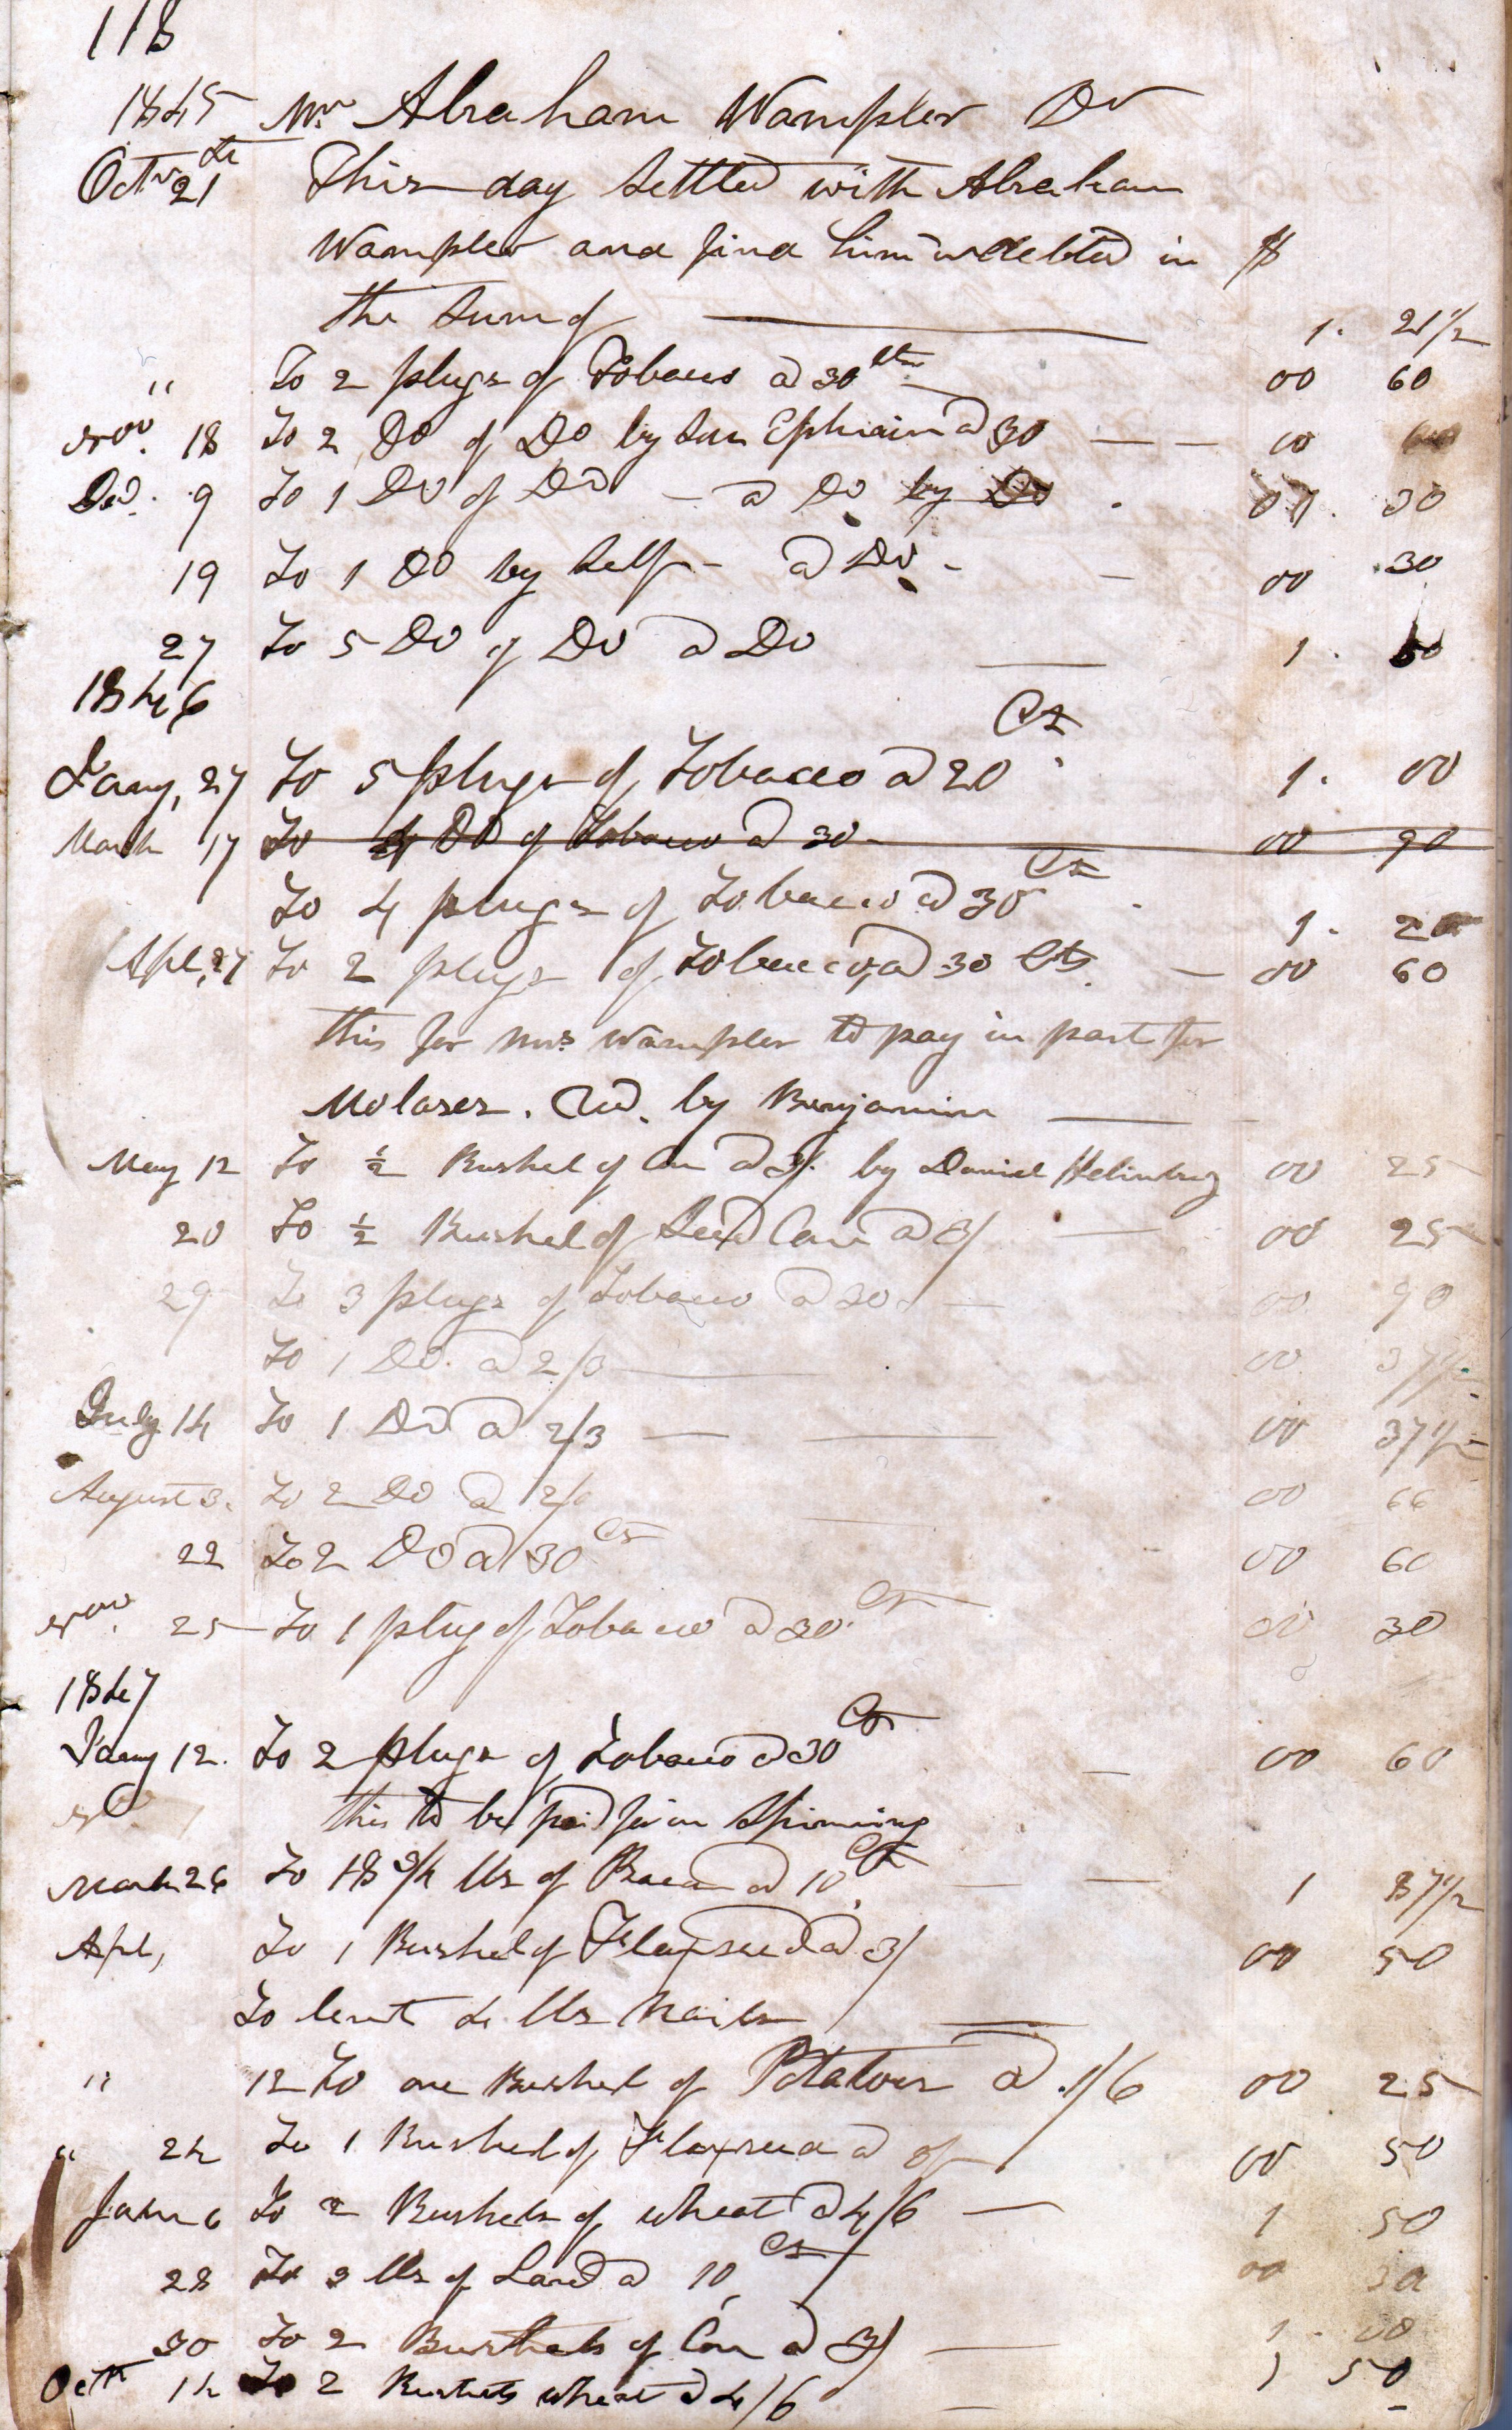 118
1845 Mr Abraham Wampler Dr
Octr 21 This day Settled with Abraham
Wampler and find him indebted in $
the Sum of 1. 21 1/2
" To 2 plugs of Tobacco @ 30 cts 00 60
Nov. 18 To 2 Do of Do by Son Ephraim @ 30 00 60
Dec. 9 To 1 Do of Do @ Do by Do 00. 30
19 To 1 Do by Self @ Do 00 30
27 To 5 Do of Do @ Do 1. 50
1846
Jany, 27 To 5 plugs of Tobacco @ 20 Cts 1. 00
March 17 To Do of Tobacco @ 30 00 90
To 4 plugs of Tobacco @ 30 Cts 1. 20
Apl, 27 To 2 plugs of Tobacco, @ 30 Cts. 00 60
this for Mrs Wampler to pay in part for
Molases. by Benjamin
May 12 To 1/2 Bushel of Corn @ 3/ by Daniel 00 25
20 To 1/2 Bushel of Seed Corn @ 3/ 00 25
29 To 3 plugs of Tobacco @ 30 00 90
To 1 Do. @ 2/3 00 37 1/2
July 14 To 1 Do @ 2/3 00 37 1/2
August 3. To 2 Do @ 2/ 00 66
22 To 2 Do @ 30 Cts 00 60
Nov. 25 To 1 plug of Tobacco @ 30 Cts 00 30
1847
Jany 12. To 2 plugs of Tobacco @ 30 Cts 00 60
this to be paid for in Spinning
March 26 To 18 3/4 lbs of Bacon @ 10 Cts 1 87 1/2
Apl, To 1 Bushel of Flaxseed @ 3/ 00 50
To lent 4 lbs Nails
" 12 To one Bushel of Potatoes @ 1/6 00 25
" 24 To 1 Bushel of Flaxseed @ 00 50
June 6 To 2 Bushels of wheat @ 4/6 1 50
28 To 3 lbs of Lard @ 10 Cts 00 30
30 To 2 Bushels of Corn @ 3/ 1. 00
Octr 14 To 2 Bushels wheat @ 4/6 1 50